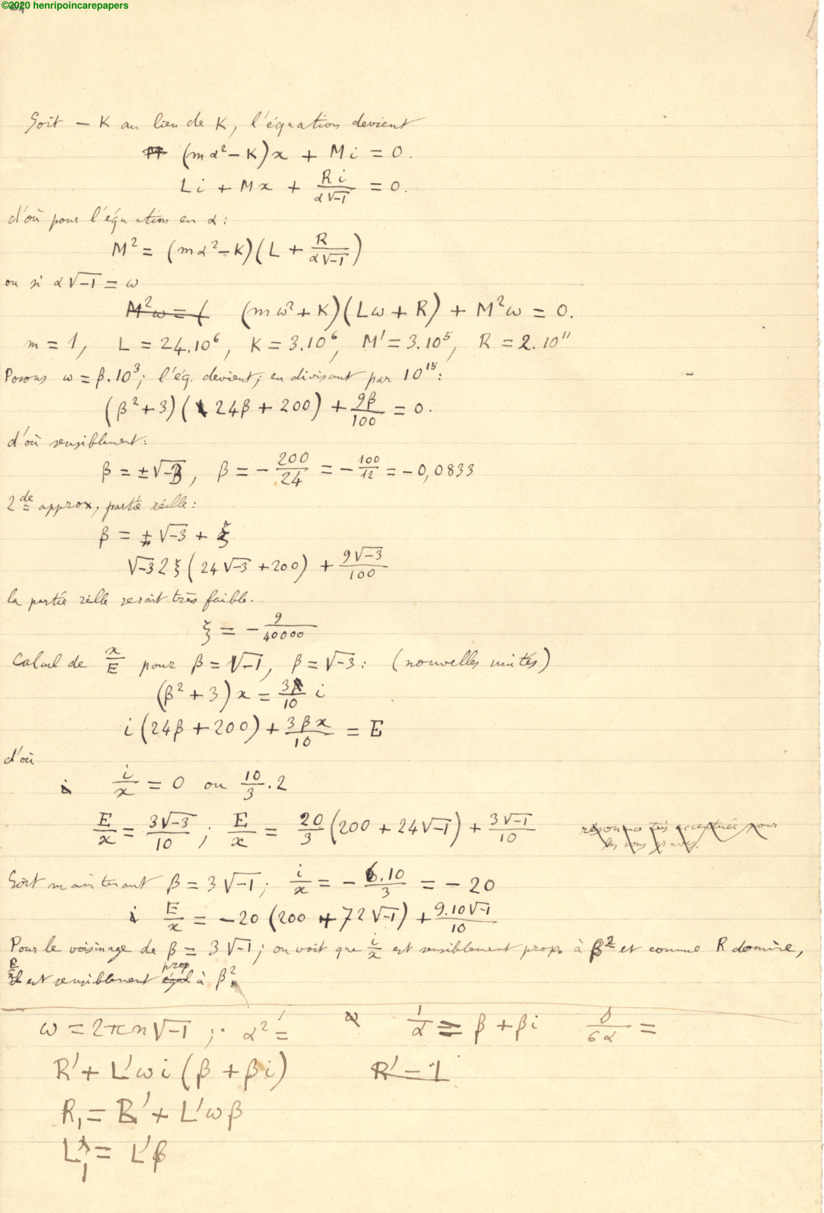 ©2020 henripoincarepapers
Soit − K au lieu de K, l'équation devient
(mα² − K)x + Mi = 0.
Li + Mx + Ri/(α√−1) = 0.
d'où pour l'équation en α :
M² = (mα² − K)(L + R/(α√−1))
ou si α√−1 = ω
M²ω = ( (mω² + K)(Lω + R) + M²ω = 0.
m = 1, L = 24.10⁶, K = 3.10⁶, M' = 3.10⁵, R = 2.10¹¹
Posons ω = β.10³; l'éq. devient, en divisant par 10¹⁵:
(β² + 3)(24β + 200) + 9β/100 = 0.
d'où sensiblement:
β = ±√−3, β = −200/24 = −100/12 = −0,0833
2de approx, partie réelle:
β = ±√−3 + ξ
√−3 2ξ(24√−3 + 200) + 9√−3/100
la partie réelle serait très faible.
ξ = −9/40000
Calcul de x/E pour β = √−1, β = √−3: (nouvelles unités)
(β² + 3)x = 3/10 i
i(24β + 200) + 3βx/10 = E
d'où
i/x = 0 ou 10/3 . 2
E/x = 3√−3/10 ; E/x = 20/3 (200 + 24√−1) + 3√−1/10 résonance très acceptuée pour
les sons graves.
Soit maintenant β = 3√−1; i/x = −6.10/3 = −20
i E/x = −20(200 + 72√−1) + 9.10√−1/10
Pour le voisinage de β = 3√−1; on voit que i/x est sensiblement propr à β² et comme R domine,
E/x est sensiblement égal prop à β².
ω = 2πn√−1 ; α² = 1/α = β + βi δ/6α =
R' + L'ωi(β + βi) R' − L
R₁ = R' + L'ωβ
L'₁ = L'β